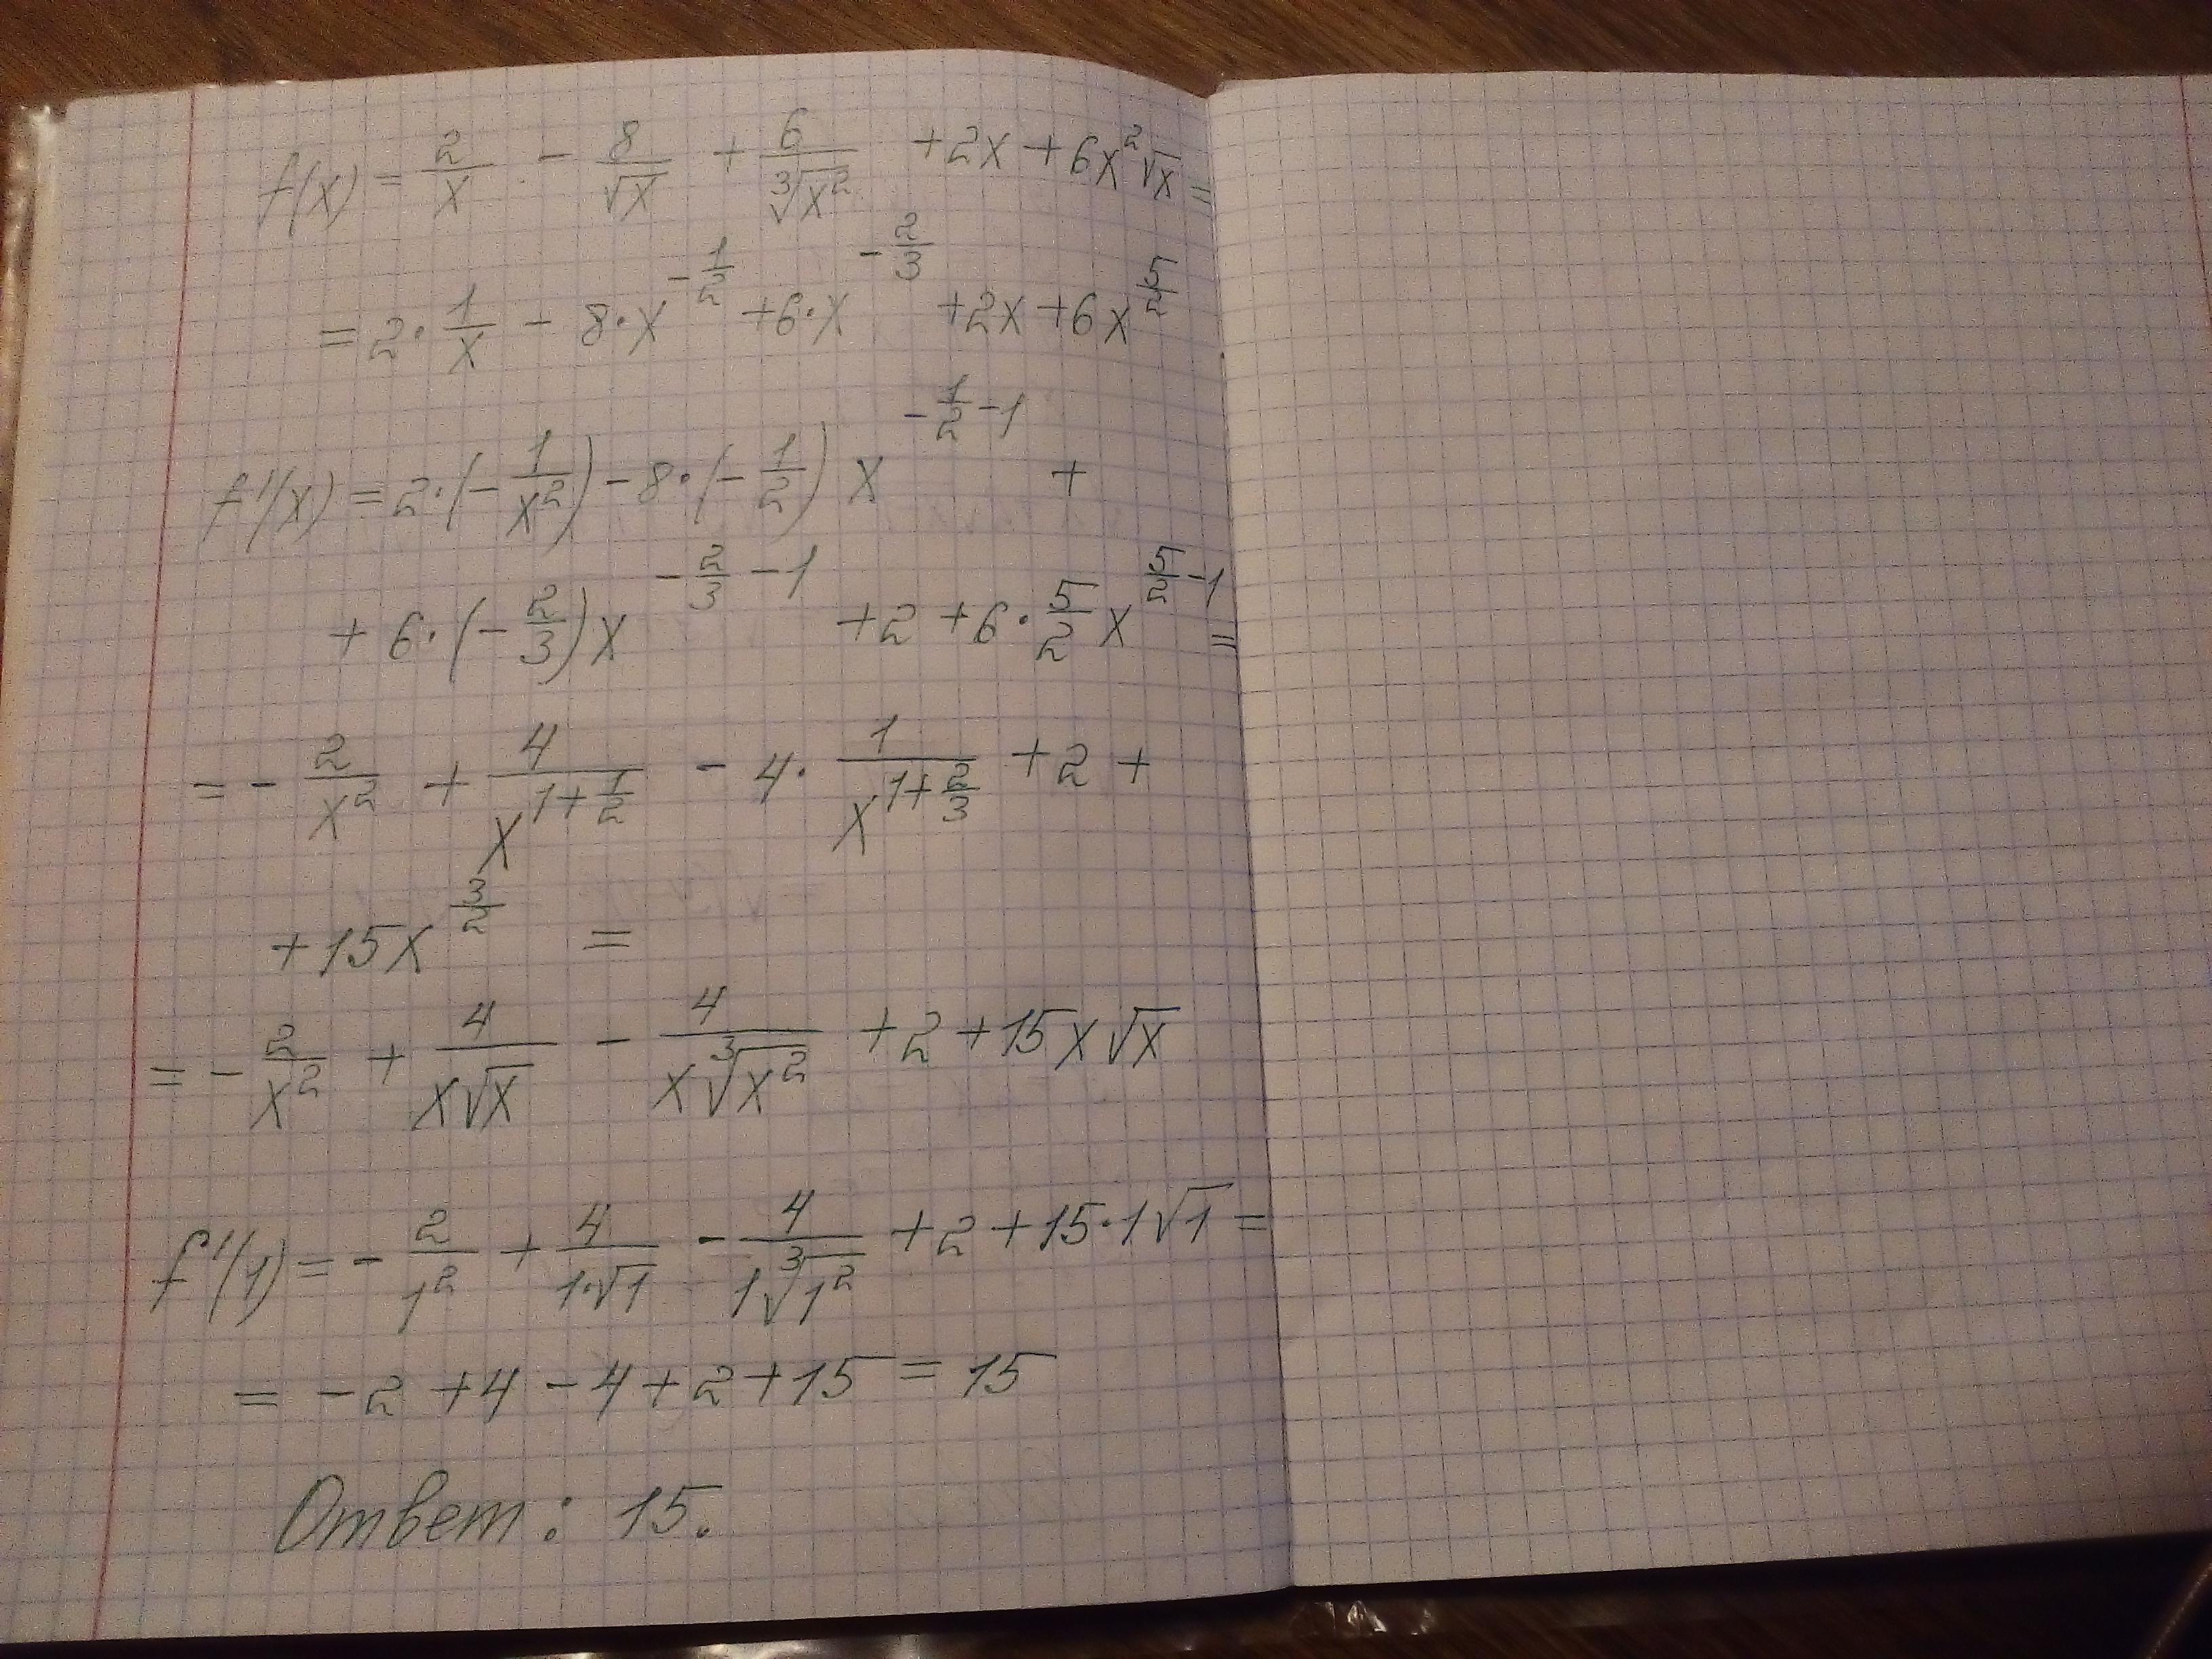 f(x) = 2/x - 8/√x + 6/∛x² + 2x + 6x²√x =
= 2·1/x - 8·x^(-1/2) + 6·x^(-2/3) + 2x + 6x^(5/2)
f'(x) = 2·(-1/x²) - 8·(-1/2)x^(-1/2-1) +
+ 6·(-2/3)x^(-2/3-1) + 2 + 6·5/2x^(5/2-1) =
= -2/x² + 4/x^(1+1/2) - 4·1/x^(1+2/3) + 2 +
+ 15x^(3/2) =
= -2/x² + 4/(x√x) - 4/(x∛x²) + 2 + 15x√x
f'(1) = -2/1² + 4/(1·√1) - 4/(1∛1²) + 2 + 15·1√1 =
= -2 + 4 - 4 + 2 + 15 = 15
Ответ: 15.